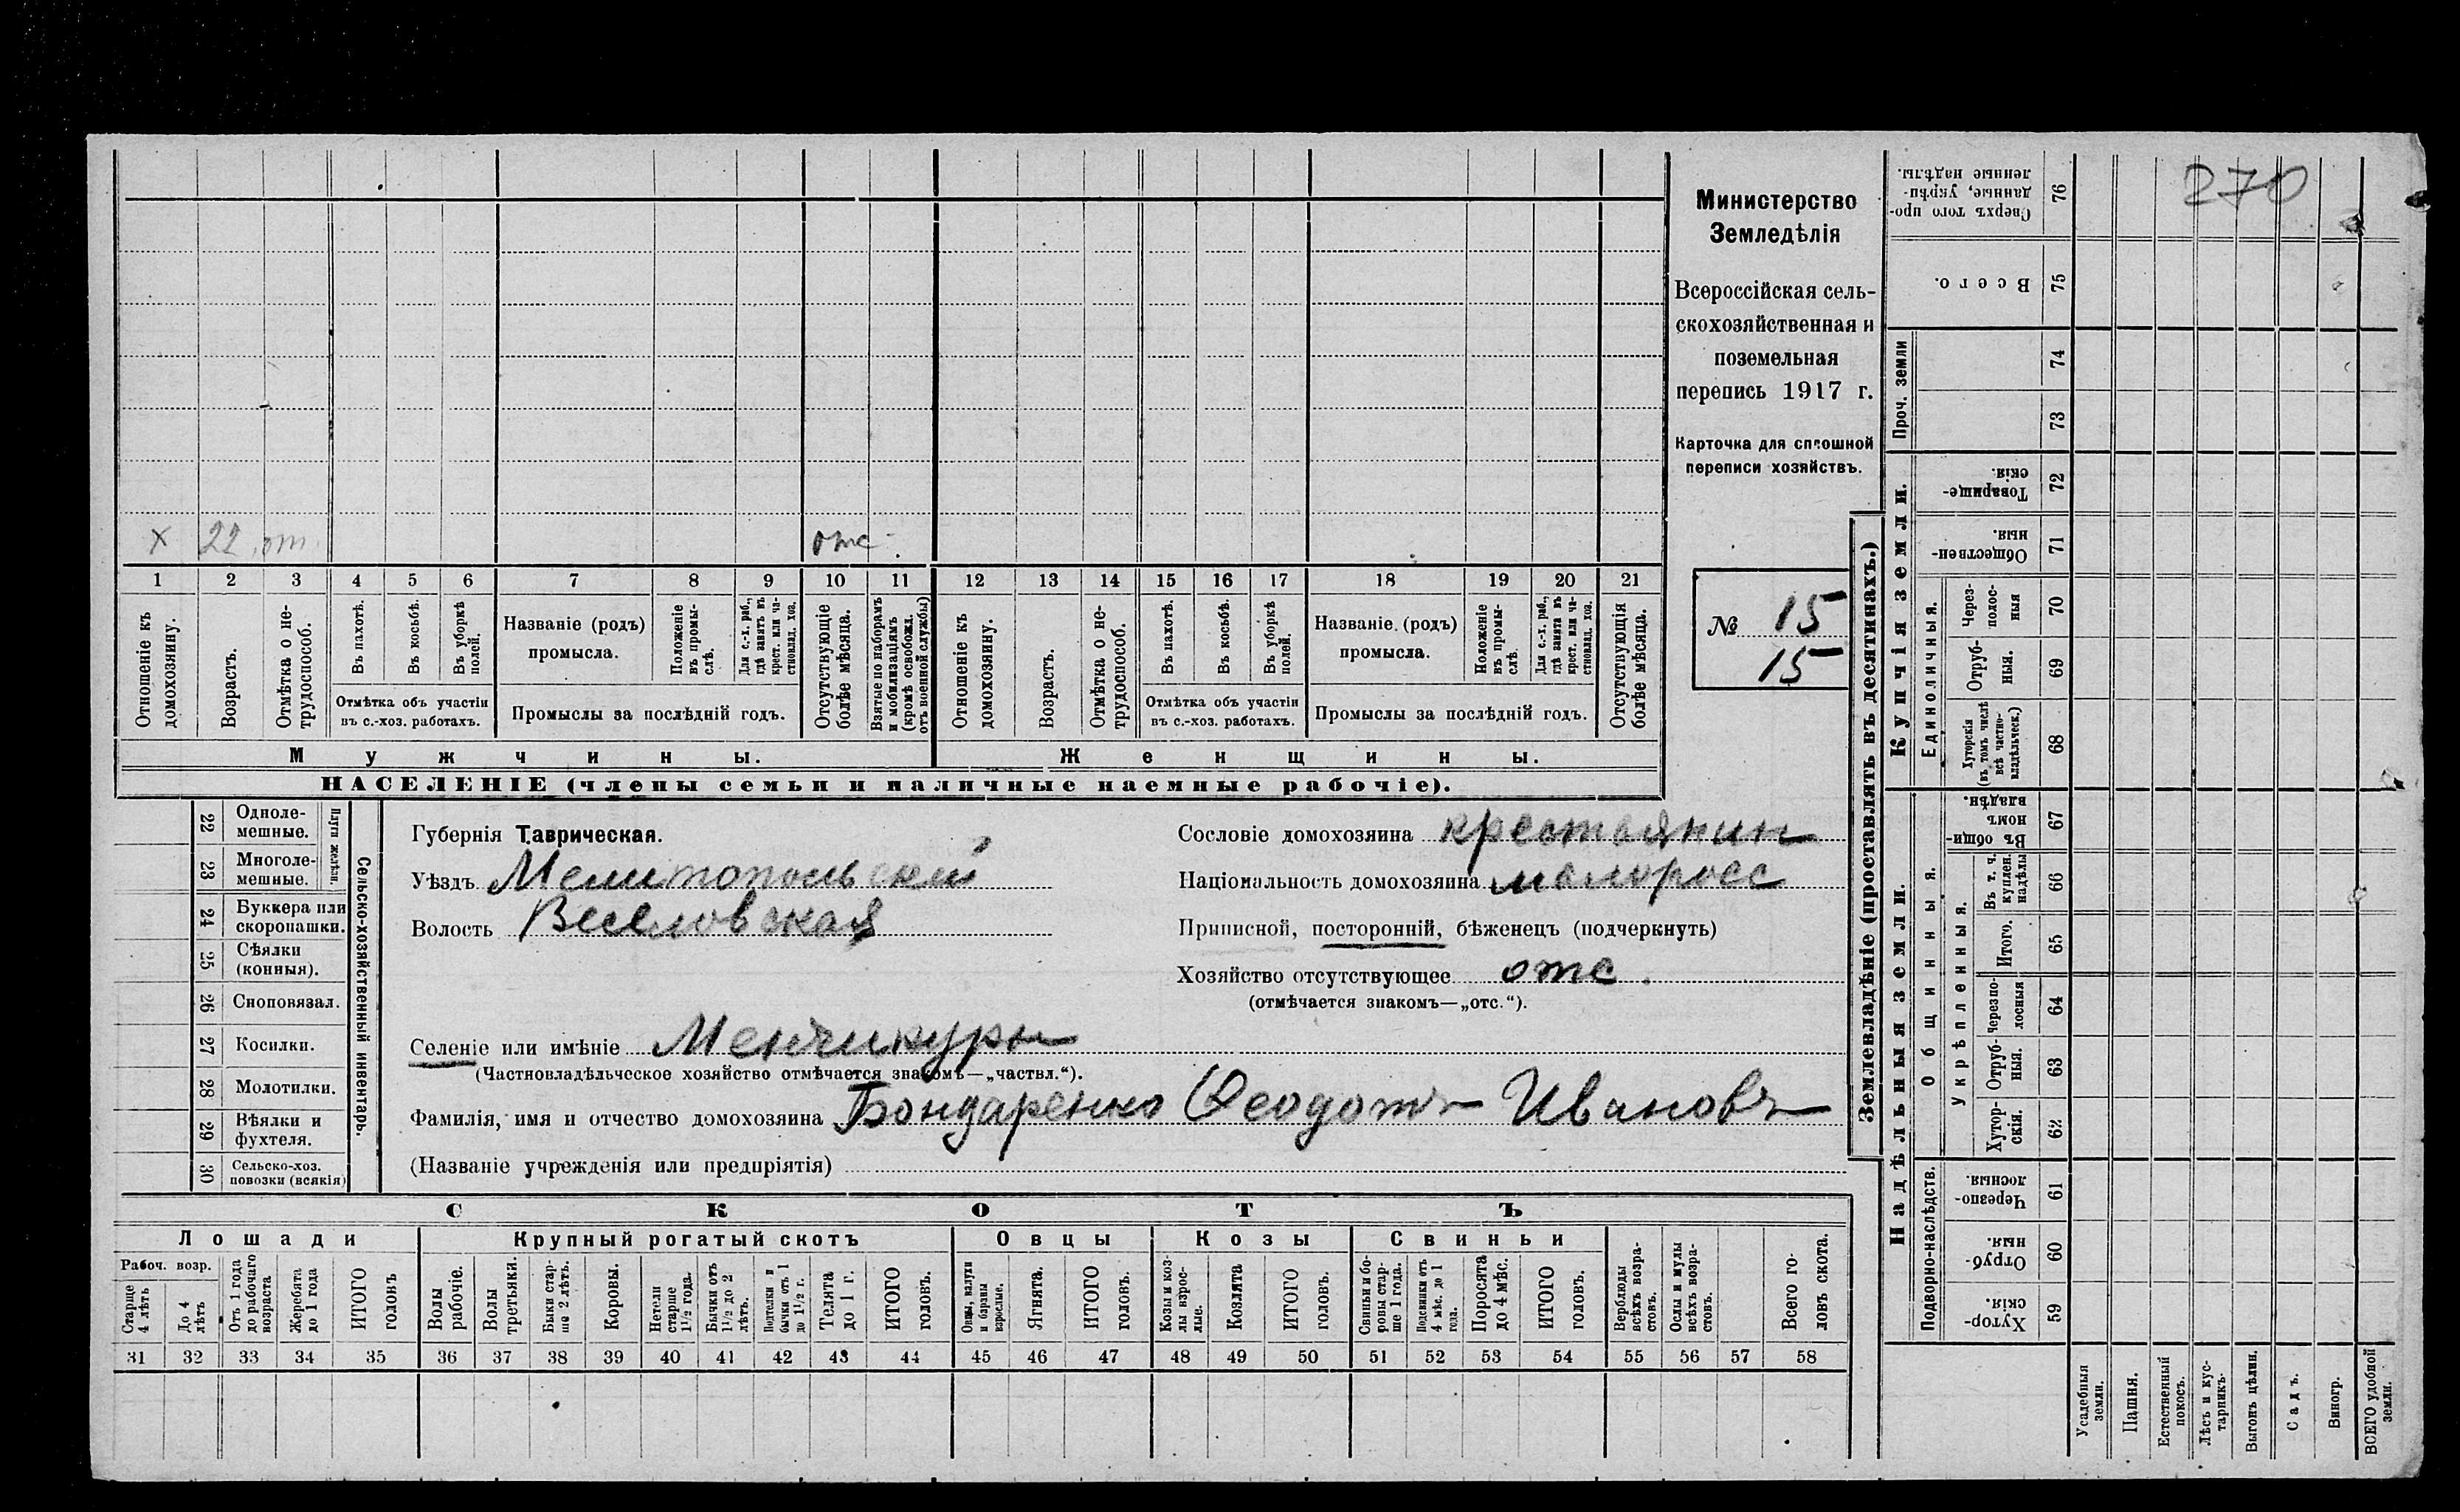 270
Министерство
Земледѣлія
Всероссійская сель-
скохозяйственная и
поземельная
перепись 1917 г.
Карточка для сплошной
переписи хозяйствъ.
№ 15
15
х 22 от. отс.
1 2 3 4 5 6 7 8 9 10 11 12 13 14 15 16 17 18 19 20 21
Отношеніе къ домохозяину.
Возрастъ.
Отмѣтка о не-трудоспособ.
Въ пахотѣ.
Въ косьбѣ.
Въ уборкѣ полей.
Отмѣтка объ участіи
въ с.-хоз. работахъ.
Названіе (родъ)
промысла.
Положеніе въ промы-слѣ.
Для с.-х. раб., гдѣ занятъ въ крест. или ча-стновлад. хоз.
Промыслы за послѣдній годъ.
Отсутствующіе болѣе мѣсяца.
Взятые по наборамъ и мобилизаціямъ (кромѣ освобожд. отъ военной службы)
Отношеніе къ домохозяину.
Возрастъ.
Отмѣтка о не-трудоспособ.
Въ пахотѣ.
Въ косьбѣ.
Въ уборкѣ полей.
Отмѣтка объ участіи
въ с.-хоз. работахъ.
Названіе (родъ)
промысла.
Положеніе въ промы-слѣ.
Для с.-х. раб., гдѣ занята въ крест. или ча-стновлад. хоз.
Промыслы за послѣдній годъ.
Отсутствующія болѣе мѣсяца.
Мужчины. Женщины.
НАСЕЛЕНІЕ (члены семьи и наличные наемные рабочіе).
22 Одноле-мешные.
23 Многоле-мешные.
Плуги желѣзн.
24 Буккера или скоропашки.
25 Сѣялки (конныя).
26 Сноповязал.
27 Косилки.
28 Молотилки.
29 Вѣялки и фухтеля.
30 Сельско-хоз. повозки (всякія)
Сельско-хозяйственный инвентарь.
Губернія Таврическая.
Уѣздъ Мелитопольский
Волость Веселовская
Сословіе домохозяина крестьянин
Національность домохозяина малоросс
Приписной, посторонній, бѣженецъ (подчеркнуть)
Хозяйство отсутствующее отс.
(отмѣчается знакомъ—„отс.“).
Селеніе или имѣніе Менчикуры
(Частновладѣльческое хозяйство отмѣчается знакомъ—„частвл.“).
Фамилія, имя и отчество домохозяина Бондаренко Ѳеодотъ Ивановъ
(Названіе учрежденія или предпріятія)
СКОТЪ
Лошади Крупный рогатый скотъ Овцы Козы Свиньи
Рабоч. возр.
Старше 4 лѣтъ
До 4 лѣтъ
Отъ 1 года до рабочаго возраста
Жеребята до 1 года
ИТОГО головъ
Волы рабочіе.
Волы третьяки.
Быки стар-ше 2 лѣтъ.
Коровы.
Нетели старше 1½ года.
Бычки отъ 1½ до 2 лѣтъ.
Подтелки и бычки отъ 1 до 1½ г.
Телята до 1 г.
ИТОГО головъ.
Овцы, валухи и бараны взрослые.
Ягнята.
ИТОГО головъ.
Козы и коз-лы взрос-лые.
Козлята
ИТОГО головъ.
Свиньи и бо-ровы стар-ше 1 года.
Подсвинки отъ 4 мѣс. до 1 года.
Поросята до 4 мѣс.
ИТОГО головъ.
Верблюды всѣхъ возра-стовъ.
Ослы и мулы всѣхъ возра-стовъ.
Всего го-ловъ скота.
31 32 33 34 35 36 37 38 39 40 41 42 43 44 45 46 47 48 49 50 51 52 53 54 55 56 57 58
Землевладѣніе (проставлять въ десятинахъ.)
Купчія земли.
Надѣльныя земли.
Сверхъ того про-данные, укрѣп-ленные надѣлы. 76
Всего. 75
Проч. земли
74
73
Товарище-скія. 72
Обществен-ныя. 71
Единоличныя.
Через-полос-ныя 70
Отруб-ныя. 69
Хуторскія (въ томъ числѣ всѣ частно-владѣльческ.) 68
Общинныя.
Въ общин-номъ владѣн. 67
Укрѣпленныя.
Въ т. ч. куплен. надѣлы 66
Итого. 65
Черезпо-лосныя 64
Отруб-ныя. 63
Хутор-скія. 62
Подворно-наслѣдств.
Черезпо-лосныя. 61
Отруб-ныя. 60
Хутор-скія. 59
Усадебныя земли.
Пашня.
Естественный покосъ.
Лѣсъ и кус-тарникъ.
Выгонъ цѣлин.
Садъ.
Виногр.
ВСЕГО удобной земли.